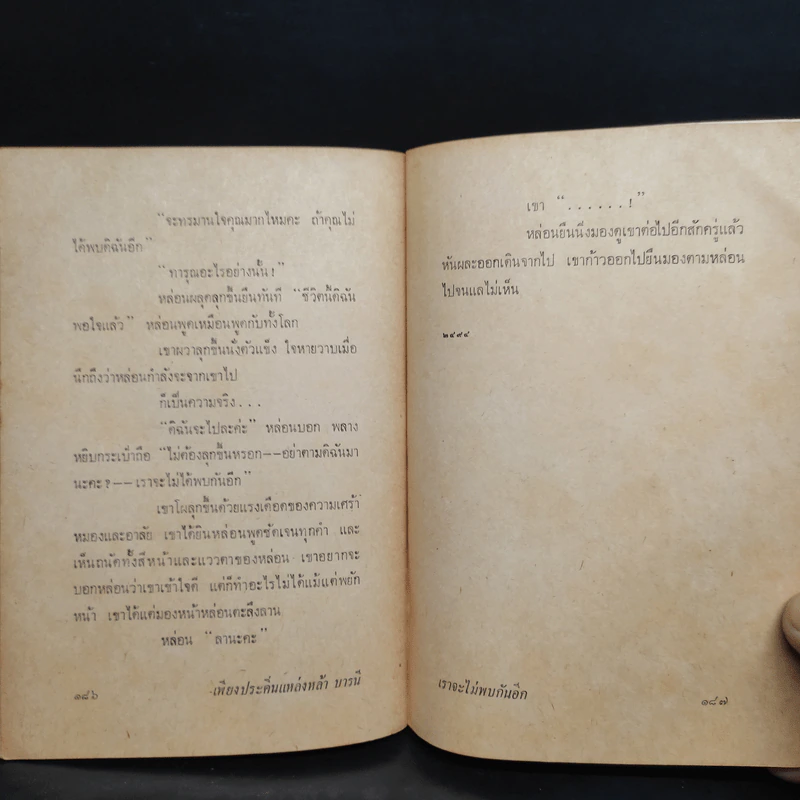 “จะทรมานใจคุณมากไหมคะ ถ้าคุณไม่
ได้พบดิฉันอีก”
“ทารุณอะไรอย่างนั้น!”
หล่อนผลุดลุกขึ้นยืนทันที “ชีวิตนี้ดิฉัน
พอใจแล้ว” หล่อนพูดเหมือนพูดกับทั้งโลก
เขาผวาลุกขึ้นนั่งตัวแข็ง ใจหายวาบเมื่อ
นึกถึงว่าหล่อนกำลังจะจากเขาไป
ก็เป็นความจริง...
“ดิฉันจะไปละค่ะ” หล่อนบอก พลาง
หยิบกระเป๋าถือ “ไม่ต้องลุกขึ้นหรอก--อย่าตามดิฉันมา
นะคะ?--เราจะไม่ได้พบกันอีก”
เขาโผลุกขึ้นด้วยแรงเดือดของความเศร้า
หมองและอาลัย เขาได้ยินหล่อนพูดชัดเจนทุกคำ และ
เห็นถนัดทั้งสีหน้าและแววตาของหล่อน เขาอยากจะ
บอกหล่อนว่าเขาเข้าใจดี แต่ก็ทำอะไรไม่ได้แม้แต่พยัก
หน้า เขาได้แต่มองหน้าหล่อนตะลึงลาน
หล่อน “ลานะคะ”
๑๘๖ เพียงประดิ่นแหล่งหล้า บารนี
เขา “......!”
หล่อนยืนนิ่งมองดูเขาต่อไปอีกสักครู่แล้ว
หันผละออกเดินจากไป เขาก้าวออกไปยืนมองตามหล่อน
ไปจนแลไม่เห็น
๒๔๙๔
เราจะไม่พบกันอีก ๑๘๗